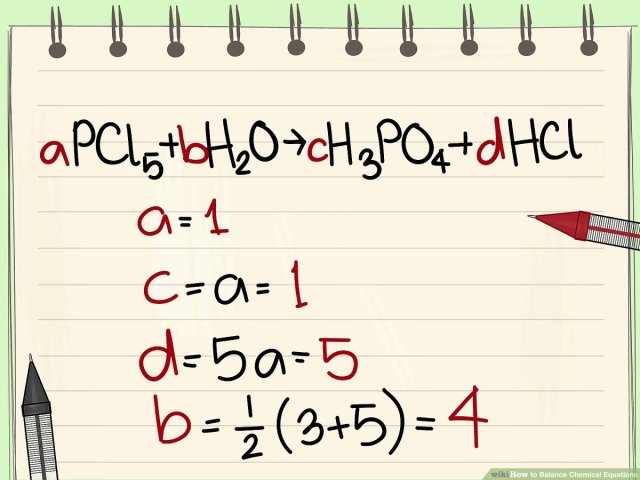 aPCl₅+bH₂O→cH₃PO₄+dHCl
a=1
c=a=1
d=5a=5
b=½(3+5)=4
wikiHow to Balance Chemical Equations